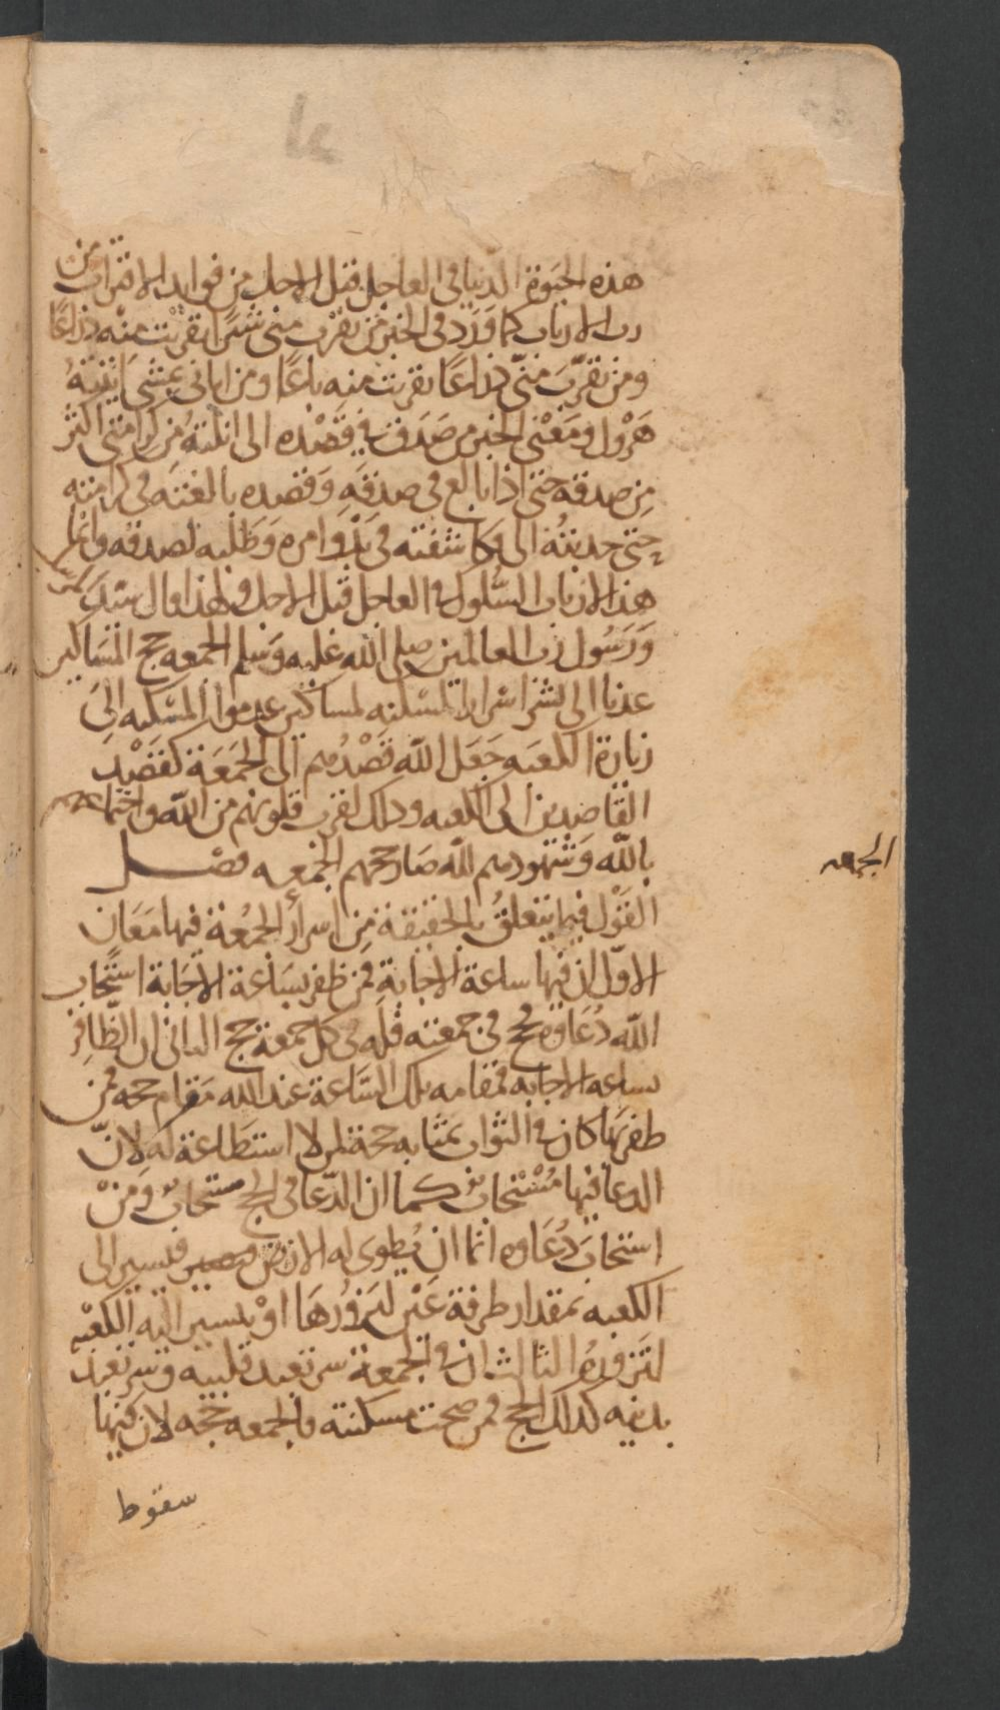 هذه الحيوة الدنيا في العاجل قبل الاجل من فوايد الاقتراب من
رب الارباب كما وَرَد في الخبر من تقرّب مني شبرًا تقربت منه ذراعًا
ومن تقرّبَ منّي ذراعًا تقربت منه باعًا ومن اتاني يمشي اتيتهُ
هَرْول ومَعْنى الخبر من صَدَق في قَصْده الى انلتهُ من كرامتي اكثر
مِن صدقه حتى اذا بالغ في صدقهِ وَقصده بالغته في كرامته
حتى جذبتُه الى وكاشفته في بَدْو امره وَطَلبه لصدقه وانما
هذا لارباب السُّلوك في العاجل قبل الاجل ولهذا قال سَيّد
وَرَسُول رب العالمين صلى الله عليه وَسَلم الجمعه حج المسَاكين
عدنا الى نشر اسرار المسكنه لمساكين المسكنه الىَ
زيارة الكعبَه جَعَل اللّه قَصْدهم الى الجمَعَة كقصْدِ
القاصِدين الى الكعبه وذلك لقرب قلوبهم من اللّه واجتماعهم
باللّه وَشهودهم للّه صَار حجهم الجمعه فصْل
القوْل فيما يتعلقُ بالحقيقة مِن اسرار الجمُعَة فيها مَعَان
الاوّل ان فيها ساعة الاجابةِ فمن ظفر بسَاعة الاجَابة استجاب
اللّه دُعَاوه فحج في جمعته فله في كل جمعة حج الثاني ان الظّافِر
بساعه الاجابه فمقامه تلك السَّاعة عند الله مَقام حجه فمن
ظفر بَها كان في الثواب بمثابه حجة لمن لا استطَاعة له لانّ
الدعا فيها مُسْتجابٌ كما ان الدّعا في الحج مستجاب وَمَنْ
استجابَ دُعَاوه اما ان يُطوى له الارض فيسير الى
الكعبه بمقدار طرفة عَيْن ليَزُورُهَا اوْ يسير اليه الكعْبه
لتَزورهُ الثالث ان في الجمعة سر تعبد قلبيه وَسِر تعبد
بدنيه كذلك الحج فمن صحت مسكنته فالجمعه حجه لان فيها
سقوط
الجمعه